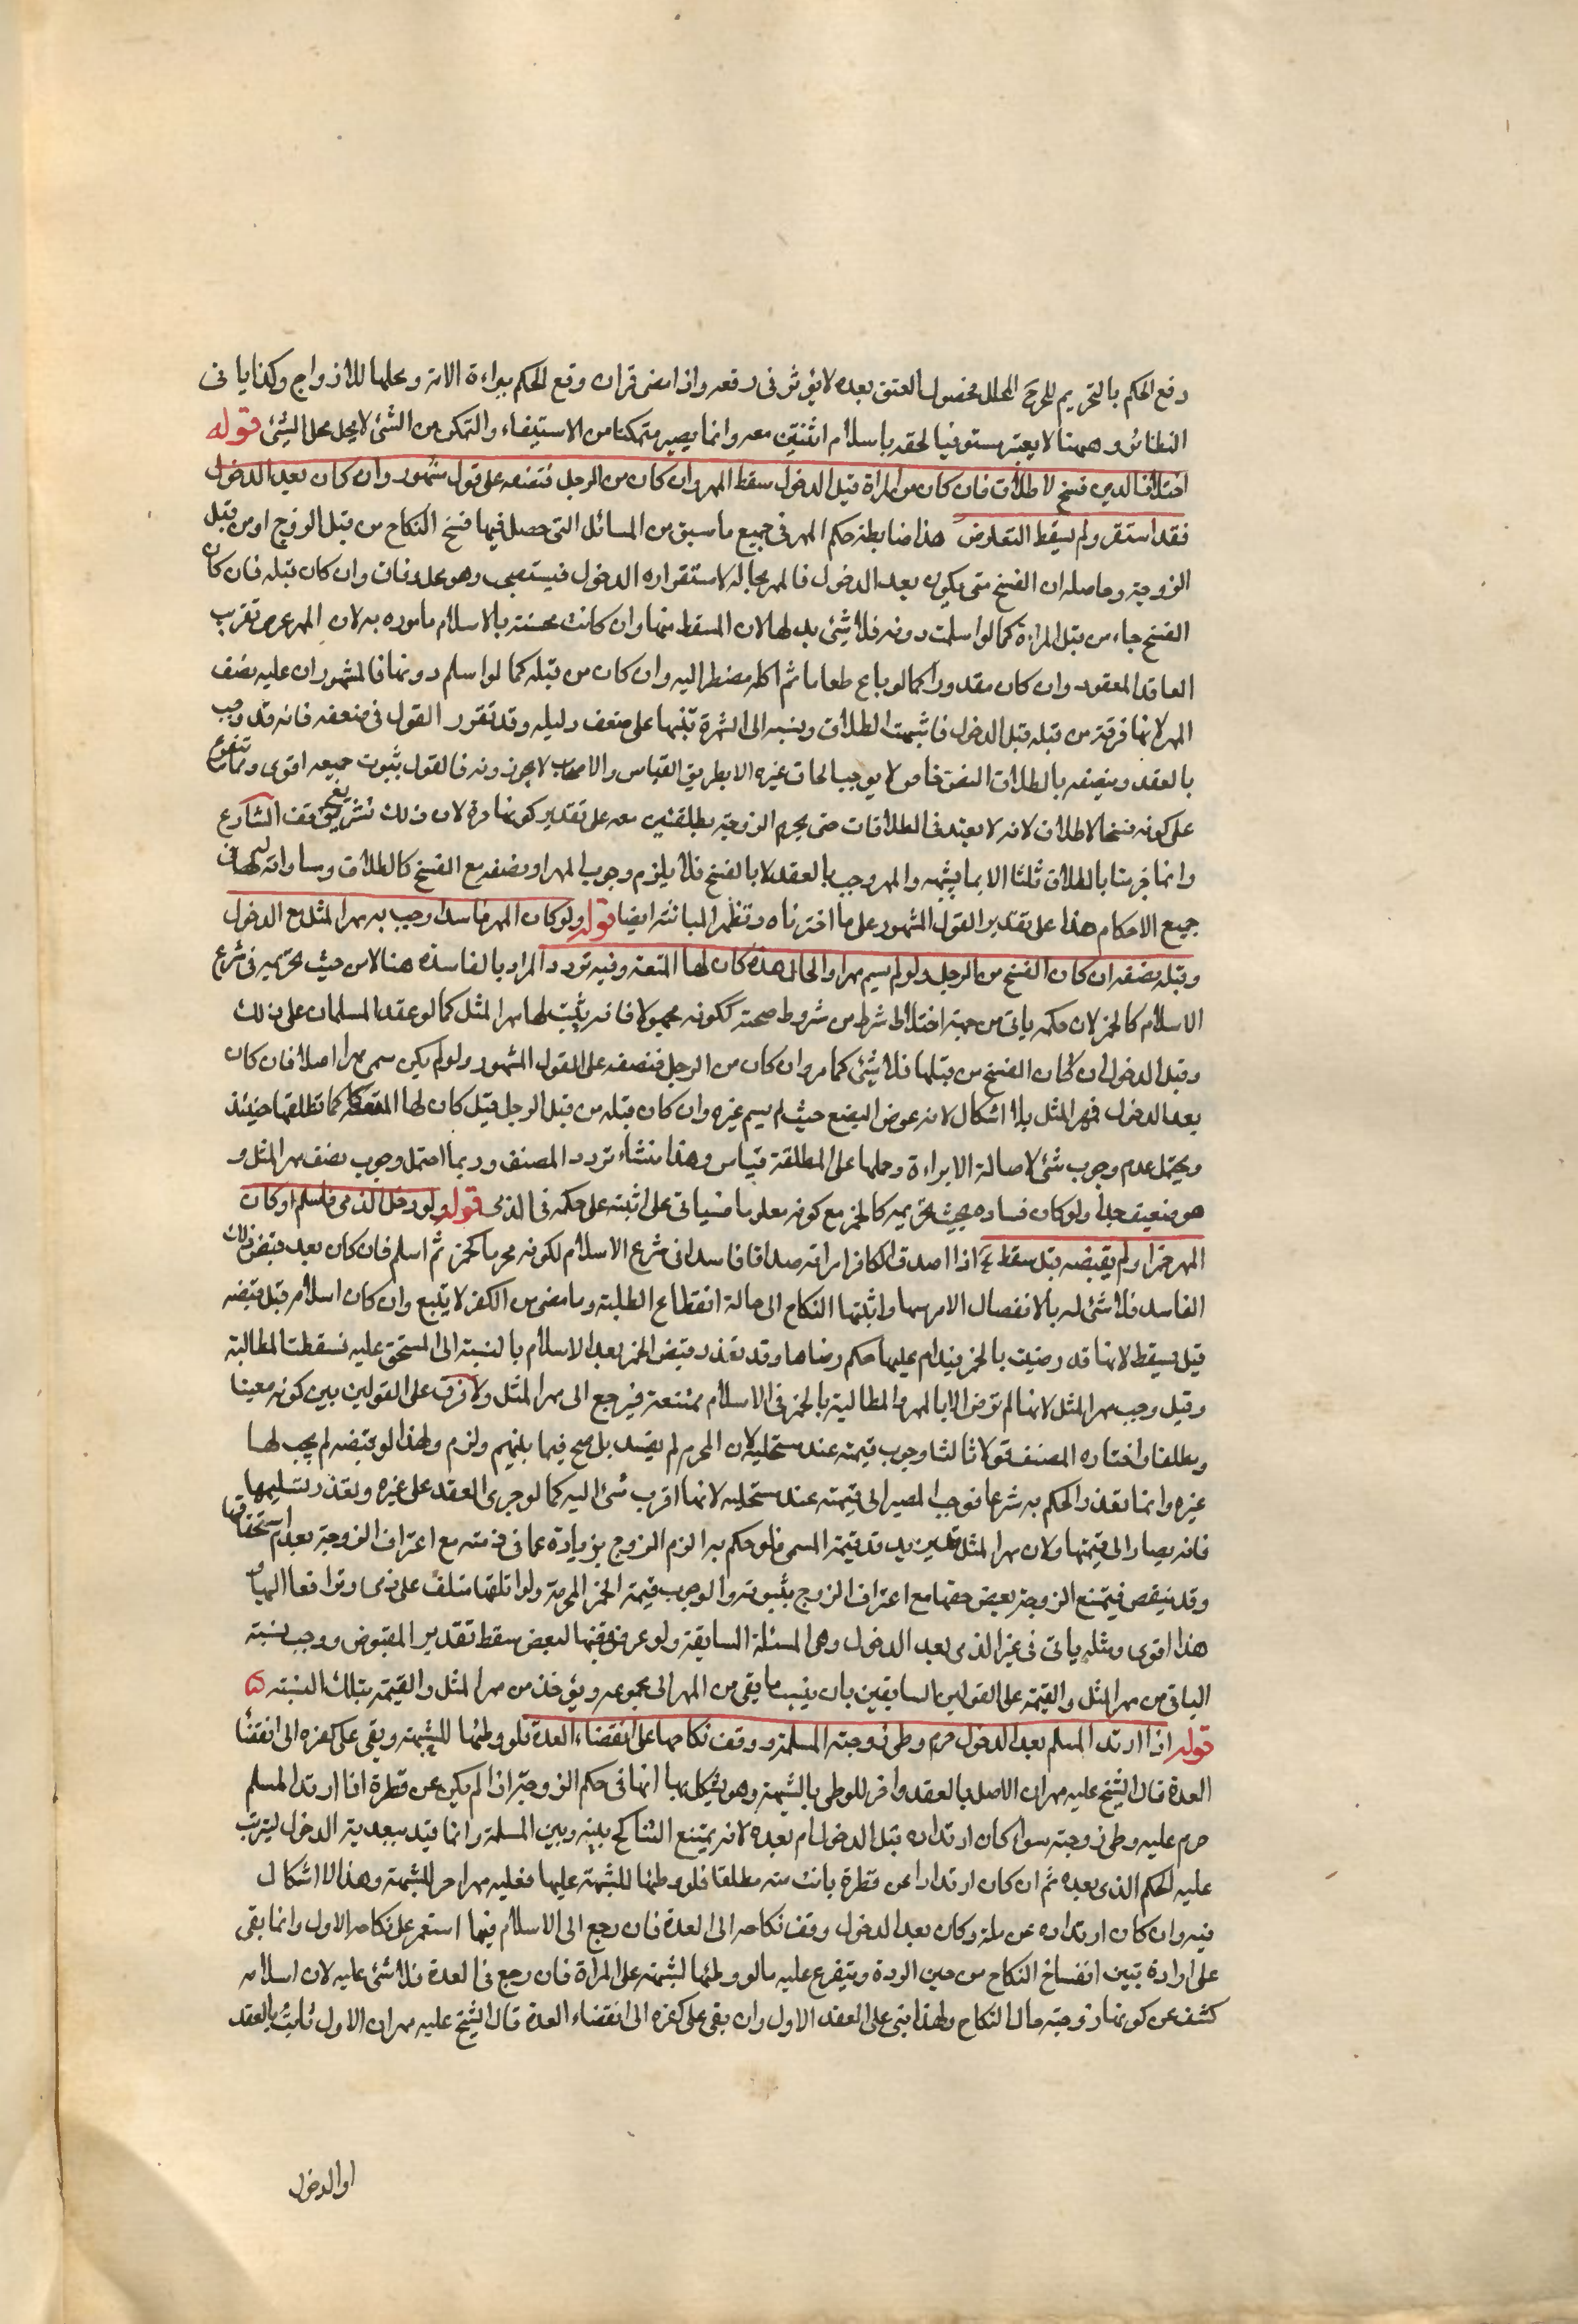 دفع الحكم بالتحريم للمحرج المحلل فحصول العتق بعده لا يؤثر فى رفعه واذا مضى قران وقع الحكم ببراءة الامة وبحلها للازواج وكذا ياتى
النظائر وههنا لا يعتبر مستوفيا لحقه باسلام اثنتين معه وانما يصير متمكنا من الاستيفاء والتمكن من الشئ لا يحل محل الشئ قوله
اختلاف الدين فسخ لا طلاق فان كان من المراة قبل الدخول سقط المهر وان كان من الرجل فنصفه على قول مشهور وان كان بعد الدخول
فقد استقر ولم يسقط التعارض هذا ضابط حكم المهر فى جميع ما سبق من المسائل التى حصل فيها فسخ النكاح من قبل الزوج او من قبل
الزوجة وحاصله ان الفسخ متى يكون بعد الدخول فالمهر بحاله لاستقراره بالدخول فيستصحب وهو محل وفاق وان كان قبله فان كان
الفسخ جاء من قبل المراة كما لو اسلمت دونه فلا شئ لها لان المسقط منها وان كانت محسنة بالاسلام ماموره به لان المهر عوض تقرب
العاقد المعقود وان كان مقدورا كما لو باع طعاما ثم اكله مضطرا اليه وان كان من قبله كما لو اسلم دونها فالمشهور ان عليه نصف
المهر لانها فرقة من قبله قبل الدخول فاشبهت الطلاق ونسبه الى الشهرة تنبيها على ضعف دليله وقد تقرر القول فى ضعفه فانه قد وجب
بالعقد وتنصيفه بالطلاق النص خاص لا يوجب الحاق غيره الا بطريق القياس والاصحاب لا يجوزونه فالقول بثبوت جميعه اقوى ومما يتفرع
على كونه فسخا لا طلاق لانه لا يعتد فى الطلاقات حتى يحرم الزوجة بطلقتين معه على تقدير كونها حرة لان ذلك شئ يقع بوقف الشارع
وانما خرمنا بالطلاق ثلثا الا بما يشبهه والمهر وجب بالعقد لا بالفسخ فلا يلزم وجوب المهر او نصفه مع الفسخ كالطلاق ومساواته لها فى
جميع الاحكام هذا على تقدير القول المشهور على ما اخترناه وتظهر المباينة ايضا قوله ولو كان المهر فاسدا وجب به مهر المثل مع الدخول
وقبله نصفه ان كان الفسخ من الرجل ولو لم يسم مهرا والحال هذه كان لها المتعة وفيه تردد المراد بالفاسد هنا لا من حيث تحريمه فى شرع
الاسلام كالخمر لان حكمه ياتى من جهة اختلال شرط من شروط صحته ككونه مجهولا فانه يثبت لها مهر المثل كما لو عقد المسلمان على ذلك
وقبل الدخول ان كان الفسخ من قبلها فلا شئ كما مر وان كان من الرجل فنصفه على القول المشهور ولو لم يكن سمى مهرا اصلا فان كان
بعد الدخول فمهر المثل بلا اشكال لانه عوض البضع حيث لم يسم غيره وان كان قبله من قبل الرجل قيل كان لها المتعة كما تطلقها حينئذ
ويحتمل عدم وجوب شئ لاصالة البراءة وحملها على المطلقة قياس وهذا منشاء تردد المصنف وربما احتمل وجوب نصف مهر المثل و
هو ضعيف جدا ولو كان فساده بحيث تحريمه كالخمر مع كونه معلوما فسياتى على اثبته على حكمه فى الذمى قوله ولو دخل الذمى فاسلم او كان
المهر خمرا ولم يقبضه قيل سقط آه اذا اصدق الكافر امراته صداقا فاسدا فى شرع الاسلام لكونه محرما كخمر ثم اسلم فان كان بعد قبض ذلك
الفاسد فلا شئ له بالانفصال الامر بينهما واثبتها النكاح الى حالة انقطاع الطلبة وما مضى من الكفر لا يتبع وان كان اسلامه قبل قبضه
قيل يسقط لانها قد رضيت بالخمر فيدام عليها حكم رضاها وقد تعذر قبض الخمر بعد الاسلام بالنسبة الى المستحق عليه فسقطت المطالبة
وقيل وجب مهر المثل لانها لم ترض الا بالمهر والمطالبة بالخمر فى الاسلام ممتنعة فيرجع الى مهر المثل ولا فرق على القولين بين كونه معينا
ومطلقا واختاره المصنف قولا ثالثا وجوب قيمته عند مستحليه لان المحرم لم يفسد بل صح فيما بينهم ولزم ولهذا لو قبضه لم يجب لها
غيره وانما تعذر الحكم به شرعا فوجب المصير الى قيمته عند مستحليه لانها اقرب شئ اليه كما لو جرى العقد على غيره وتعذر تسليمها
فانه يصار الى قيمتها ولان مهر المثل قد يزيد قد قيمة المسمى فلو حكم به الزم الزوج بزيادة عما فى ذمته مع اعتراف الزوجة بعدم استحقاقها
وقد ينقص فيمتنع الزوجة بعض حقها مع اعتراف الزوج بثبوته والوجوب قيمة الخمر المحرمة ولو اتلفها متلف على ذمى وترافعا الينا
هذا اقوى ومثله ياتى فى غير الذى بعد الدخول وهى المسئلة السابقة ولو عرض قبضها لبعض سقط تقدير المقبوض ووجب نسبة
الباقى من مهر المثل والقيمة على القولين السابقين بان ينسب ما بقى من المهر الى مجموعه ويؤخذ من مهر المثل والقيمة بتلك النسبة
قوله اذا ارتد المسلم بعد الدخول حرم وطى زوجته المسلمة ووقف نكاحها على انقضاء العدة فلو وطئها للشبهة وبقى على كفره الى انقضا
العدة قال الشيخ عليه مهران الاصلى بالعقد واخر للوطى بالشبهة وهو يشكل بما انها فى حكم الزوجة اذا لم يكن عن فطرة اذا ارتد المسلم
حرم عليه وطى زوجته سواء كان ارتداده قبل الدخول ام بعده لانه يمتنع التناكح بينه وبين المسلمة وانما قيد ببعدية الدخول ليترتب
عليه الحكم الذى بعده ثم ان كان ارتدادا عن فطرة بانت منه مطلقا فلو وطئها للشبهة عليها فعليه مهر اخر للشبهة وهذا لا اشكال
فيه وان كان ارتداده عن ملة وكان بعد الدخول وقف نكاحه الى العدة فان رجع الى الاسلام فيها استمر على نكاحه الاول وانما بقى
على ارادة تبين انفساخ النكاح من حين الردة ويتفرع عليه ما لو وطئها لشبهة على المراة فان رجع فى العدة فلا شئ عليه لان اسلامه
كشف عن كونها زوجته حال النكاح ولهذا بنى على العقد الاول وان بقى على كفره الى انقضاء العدة قال الشيخ عليه مهران الاول ثابت بالعقد
او الدخول